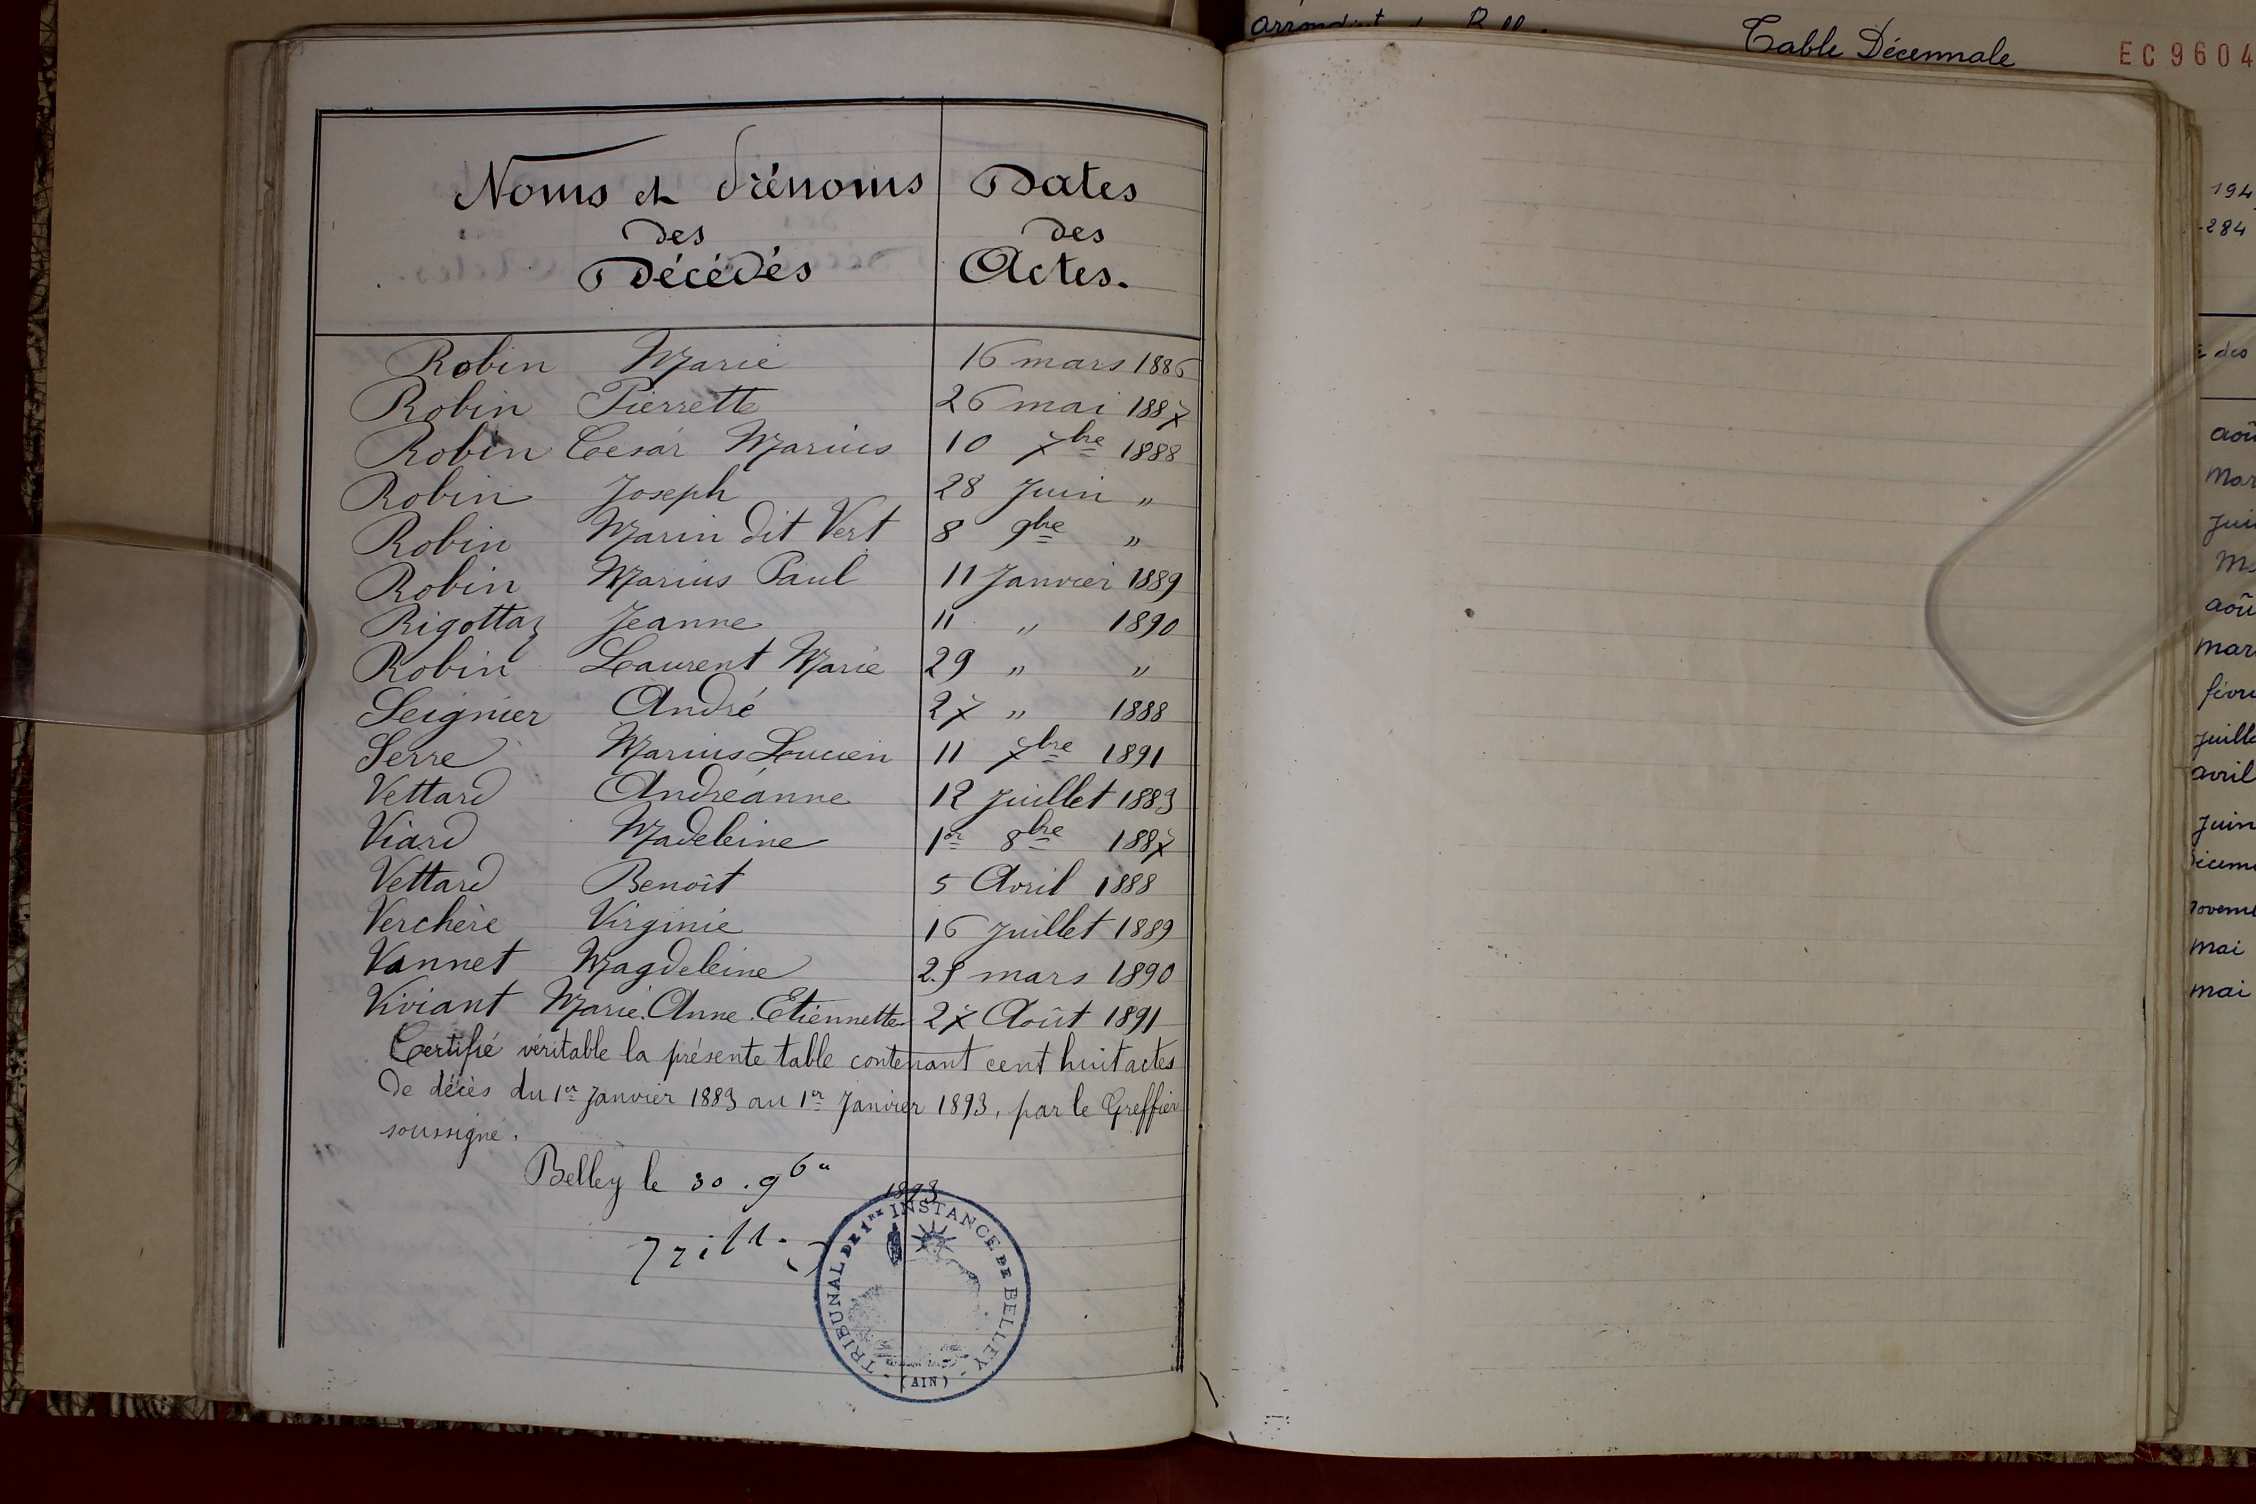 Noms et Prénoms
des
Décédés
Dates
des
Actes.
Robin Marie 16 mars 1886
Robin Pierrette 26 mai 1887
Robin Cesár Marius 10 7bre 1888
Robin Joseph 28 Juin "
Robin Marin dit Vert 8 9bre "
Robin Marius Paul 11 Janvier 1889
Rigottaz Jeanne 11 " 1890
Robin Laurent Marie 29 " "
Seignier André 27 " 1888
Serre Marius Lucien 11 7bre 1891
Vettard Andréanne 12 Juillet 1883
Viard Madeleine 1er 8bre 1887
Vettard Benoît 5 Avril 1888
Verchère Virginie 16 Juillet 1889
Vannet Magdeleine mars 1890
Viviant Marie. Anne. Etiennette 27 Août 1891
Certifié véritable la présente table contenant cent huit actes
de décès du 1er Janvier 1883 au 1er Janvier 1893, par le Greffier
soussigné.
Belley le 30. 1893
TRIBUNAL DE 1RE INSTANCE DE BELLEY
(AIN)
Table Décennale
EC 9604
194
284
des
aoû
mar
jui
aoû
mar
févri
juille
avril
juin
mai
mai